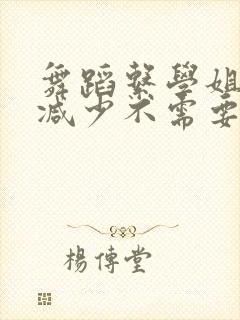 舞蹈繫學姐
減少不需要
楊傳堂